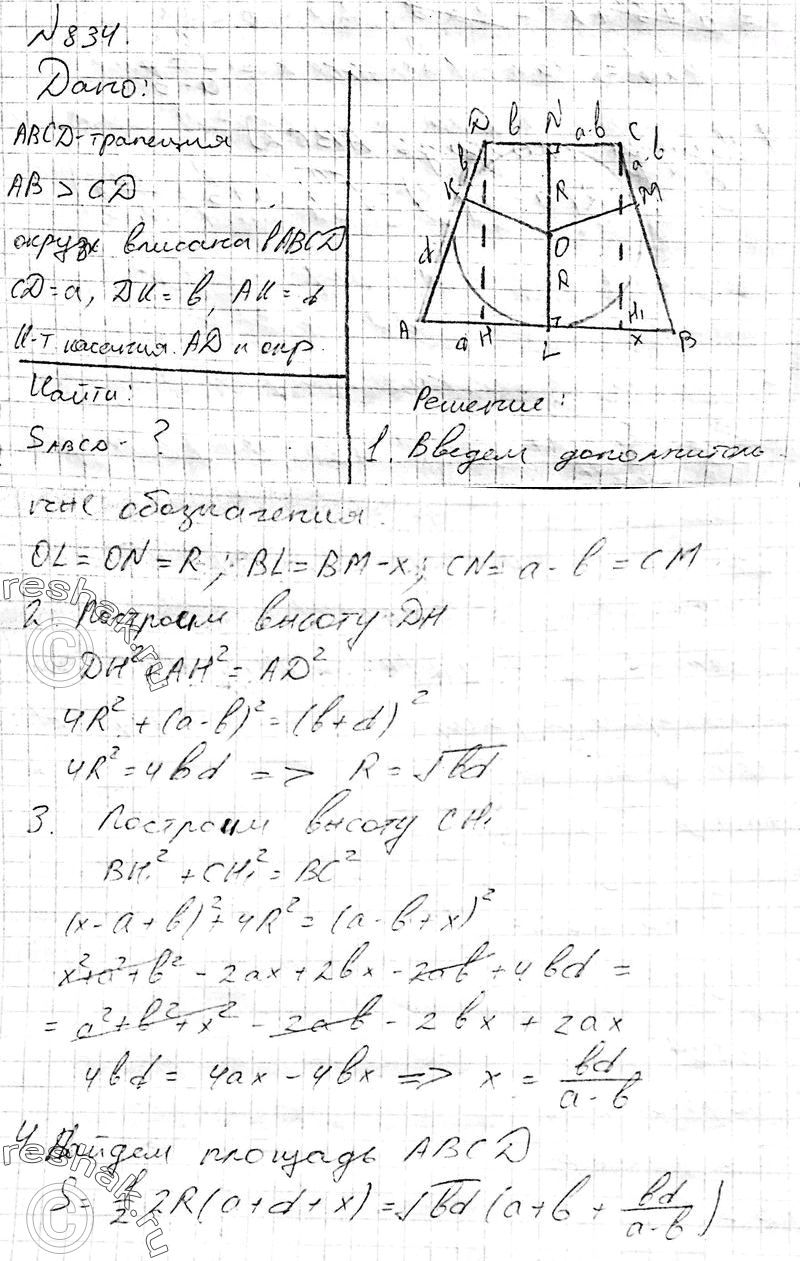 №834.
Дано:
ABCD-трапеция
AB > CD
окруж вписана в ABCD
CD=a, DK=b, AK=d
К-т касания AD и окр.
Найти:
SABCD - ?
D b N a-b C
b a-b
K R M
O
d R
A H H1 B
a L x
Решение:
1. Введем дополнитель
ные обозначения.
OL=ON=R; BL=BM-x; CN=a-b=CM
2 Построим высоту DH
DH²+AH²=AD²
4R²+(a-b)²=(b+d)²
4R²=4bd => R=√bd
3. Построим высоту CH1
BH1²+CH1²=BC²
(x-a+b)²+4R²=(a-b+x)²
x²+a²+b²-2ax+2bx-2ab+4bd=
=a²+b²+x²-2ab-2bx+2ax
4bd=4ax-4bx => x=bd/(a-b)
4. Найдем площадь ABCD
S=1/2 2R(a+d+x)=√bd(a+b+bd/(a-b))
reshak.ru
reshak.ru